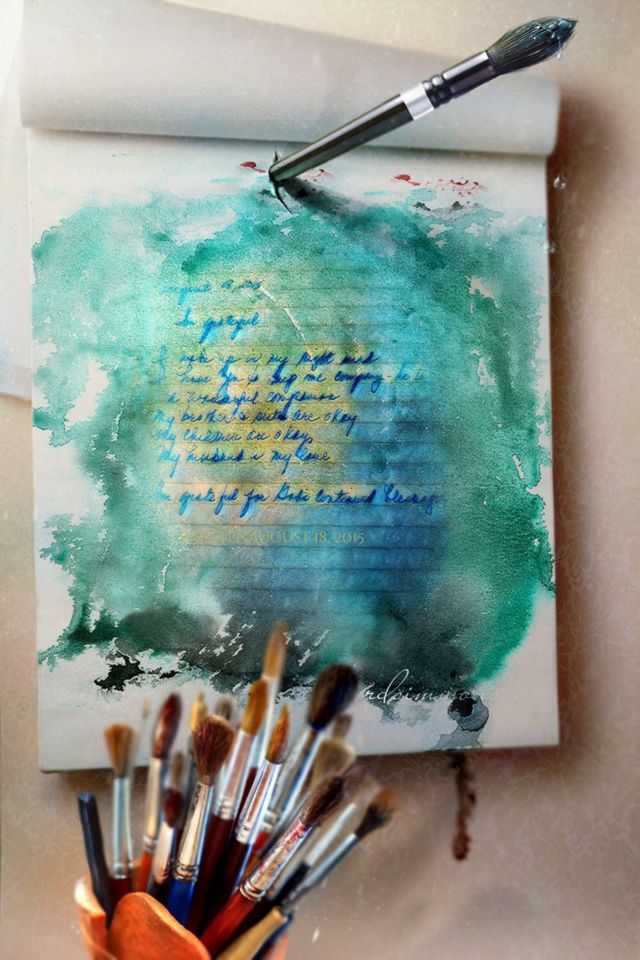 I'm grateful
I woke up in my right mind
I have you to keep me company he is
a wonderful companion
my brother & sister are okay
my children are okay
my husband is my love
I'm grateful for God's continued blessings
AUGUST 18, 2015